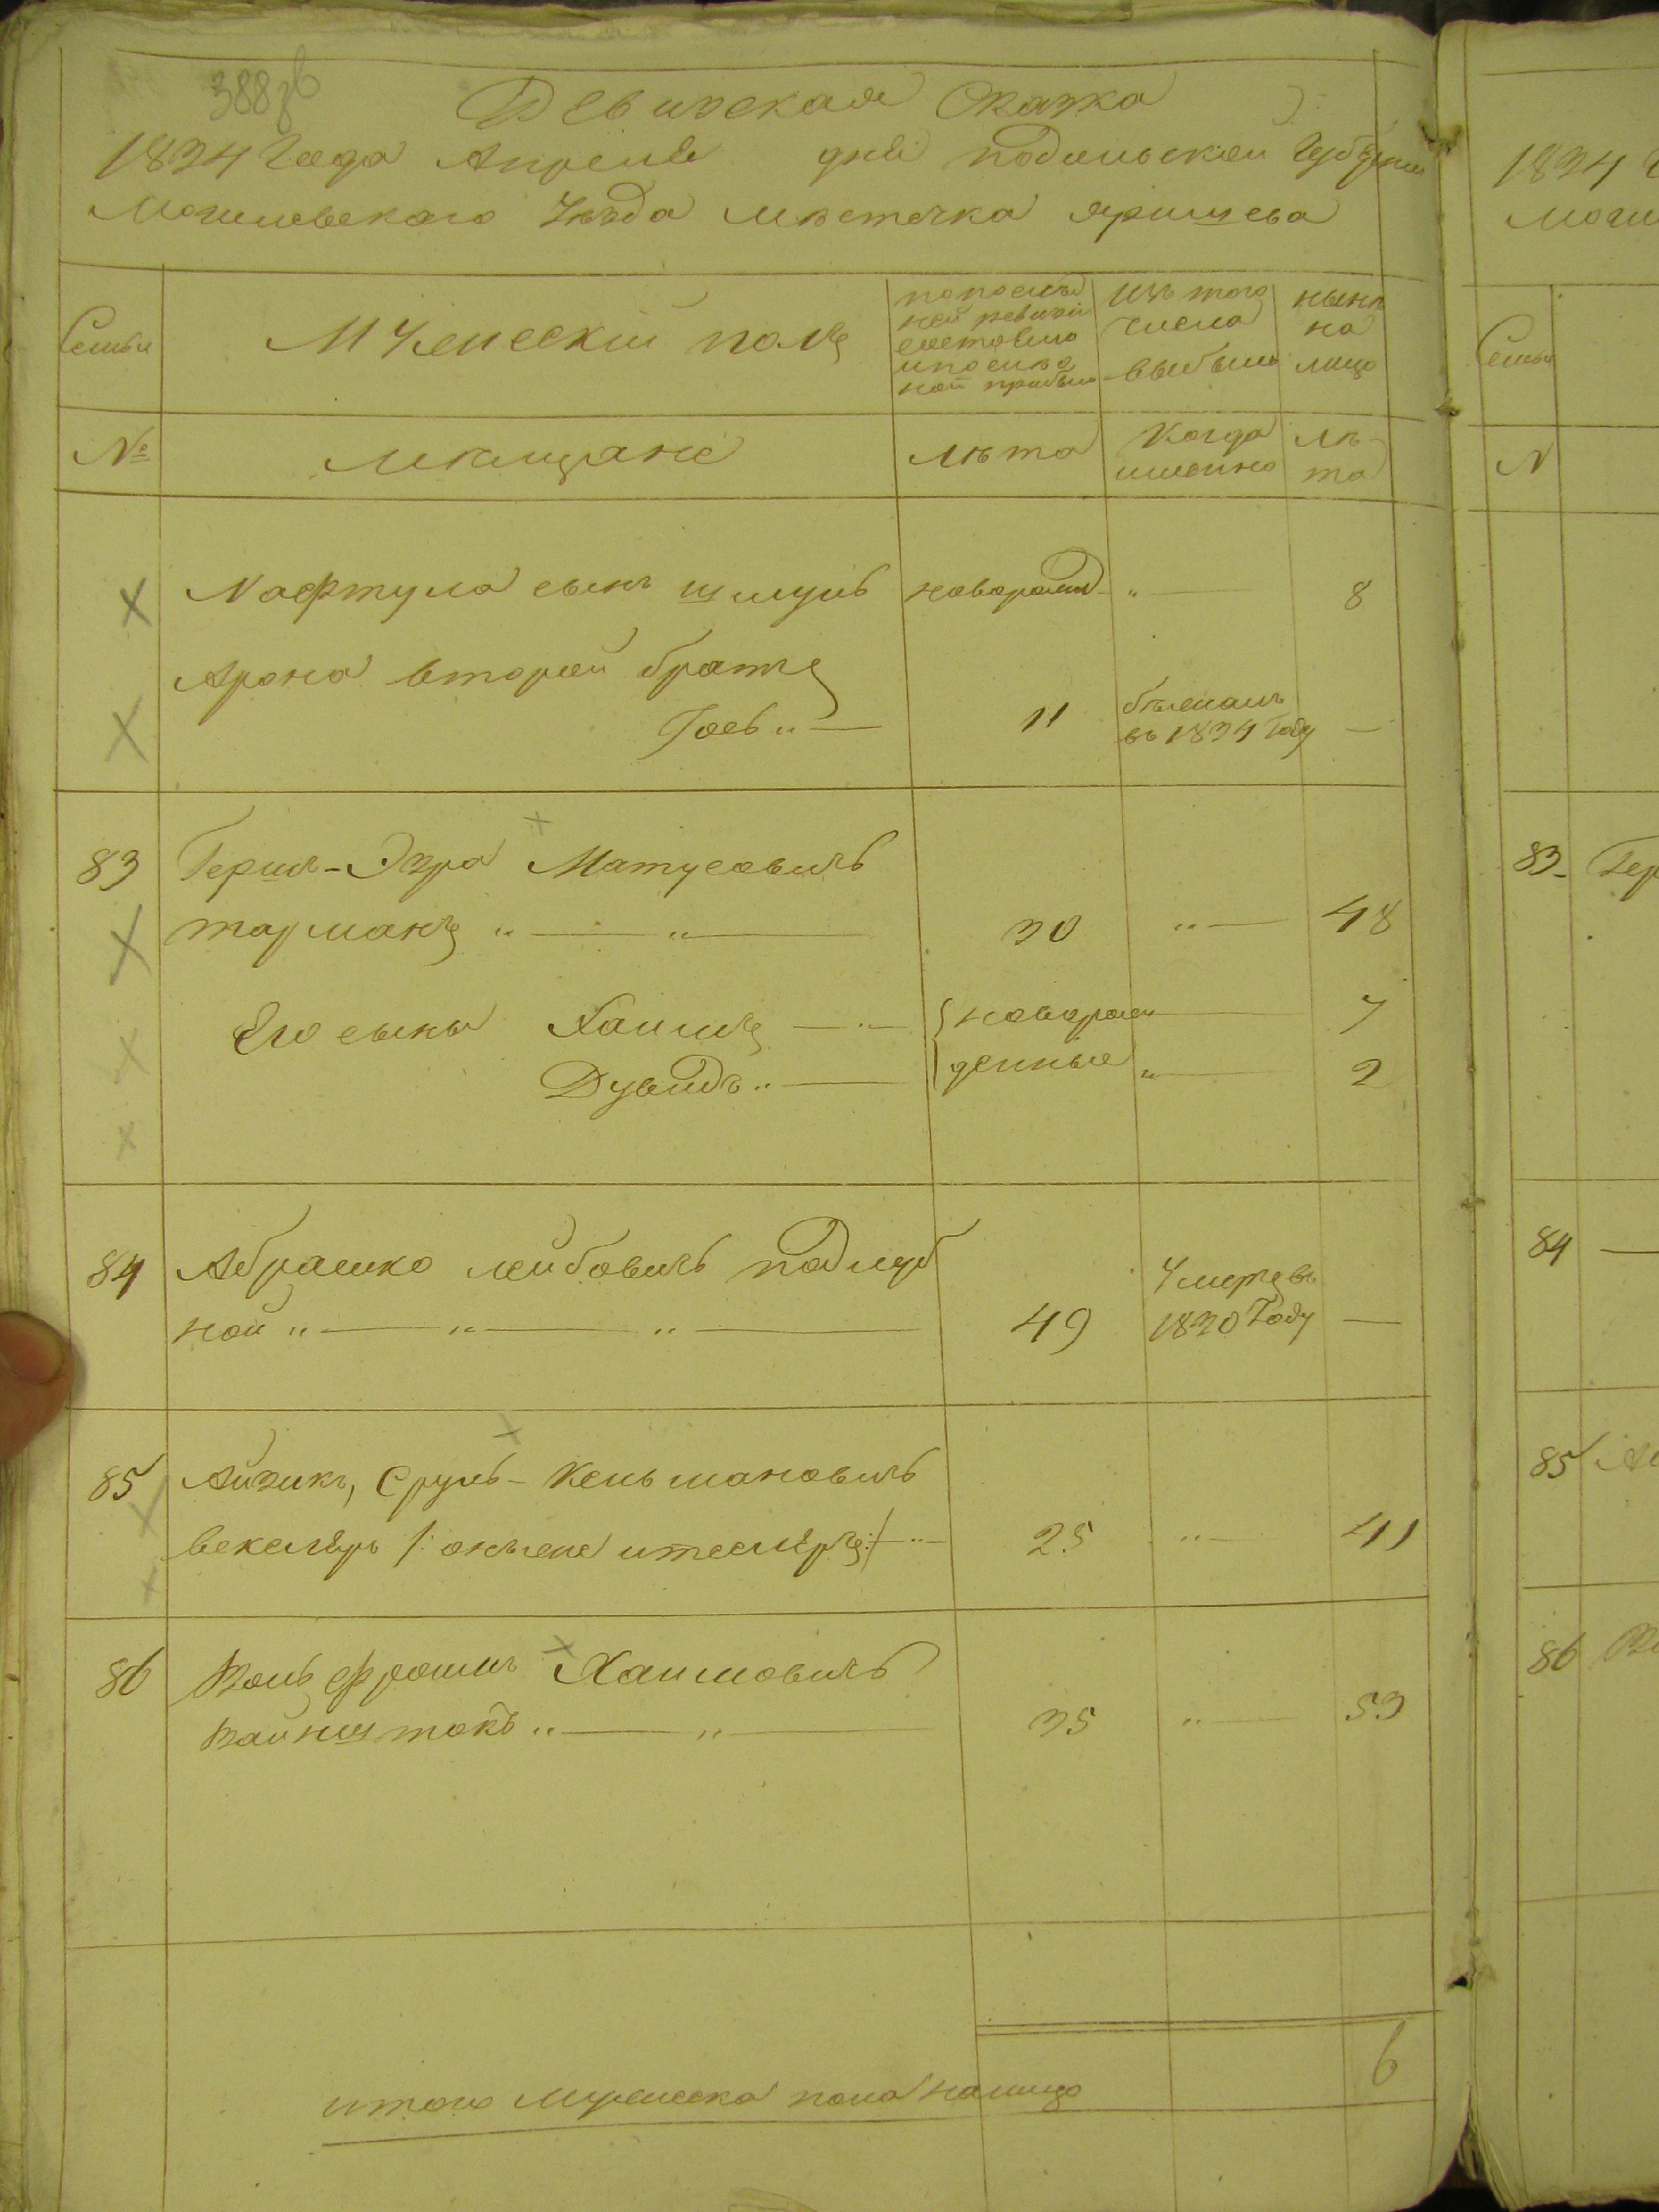 388 об
Ревизская Сказка
1834 Года Апреля дня подольской Губернии
Могилевского Уезда местечка яришева
Семьи
Мужеский полъ
по послед
ней ревизии
состояло
и после о
ной прибыло
Изъ того
числа
выбыло
ныне
на
лицо
№
мещане
лета
Когда
именно
ле-
та
Нафтула сынъ шмуль новорожд „ — 8
Арона второй братъ
Иось „ — 11 бежалъ
въ 1834 Году —
83 Гершъ-Эзра Матусовичь
тарманъ „ — „ — 30 „ — 48
Его сыны Хаимъ — „ — новорож — 7
Дувидъ „ — денные „ — 2
84 Абрашко лейбовичь подлуб
ной „ — „ — „ — 49 Умеръ въ
1830 Году —
85 Айзикъ, Сруль-Кельмановичь
векслеръ /: онъже :/ — „ — 25 „ — 41
86 Вольфроимъ Хаимовичь
Вайнштокъ „ — „ — 35 „ — 53
итого мужеска пола налицо 6
1834
Моги
Семьи
N
83- Гер
84 —
85 Ай
86 Во